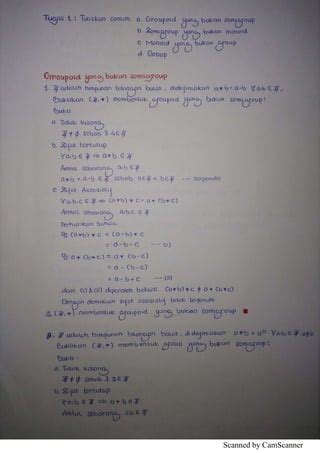 Tugas 1 : Tuliskan contoh a. Groupoid yang bukan semigroup
b. Semigroup yang bukan monoid
c. Monoid yang bukan group
d. Group
Groupoid yang bukan semigroup
1. ℤ adalah himpunan bilangan bulat, didefinisikan a*b = a-b ∀a,b ∈ ℤ,
Buktikan (ℤ,*) membentuk groupoid yang bukan semigroup!
Bukti
a. Tidak kosong
ℤ ≠ ∅ sebab ∃ 4 ∈ ℤ
b. Sifat tertutup
∀a,b ∈ ℤ ⇒ a*b ∈ ℤ
Ambil sebarang a,b ∈ ℤ
a*b = a-b ∈ ℤ sebab a ∈ ℤ - b ∈ ℤ --- terpenuhi
c. Sifat Assosiatif
∀a,b,c ∈ ℤ ⇒ (a*b)*c = a*(b*c)
Ambil sebarang a,b,c ∈ ℤ
Perhatikan bahwa
(a*b)*c = (a-b)*c
= a-b-c --- (i)
a*(b*c) = a*(b-c)
= a-(b-c)
= a-b+c --- (ii)
dari (i) & (ii) diperoleh bahwa (a*b)*c ≠ a*(b*c)
Dengan demikian sifat assosiatif tidak terpenuhi
∴ (ℤ,*) membentuk groupoid yang bukan semigroup
2. ℤ adalah himpunan bilangan bulat, didefinisikan a*b = ∀a,b ∈ ℤ,
Buktikan (ℤ,*) membentuk yang bukan semigroup!
Bukti :
a. Tidak kosong
ℤ ≠ ∅ sebab ∃ 2 ∈ ℤ
b. Sifat tertutup
∀a,b ∈ ℤ ⇒ a*b ∈ ℤ
Ambil sebarang ∈ ℤ
Scanned by CamScanner